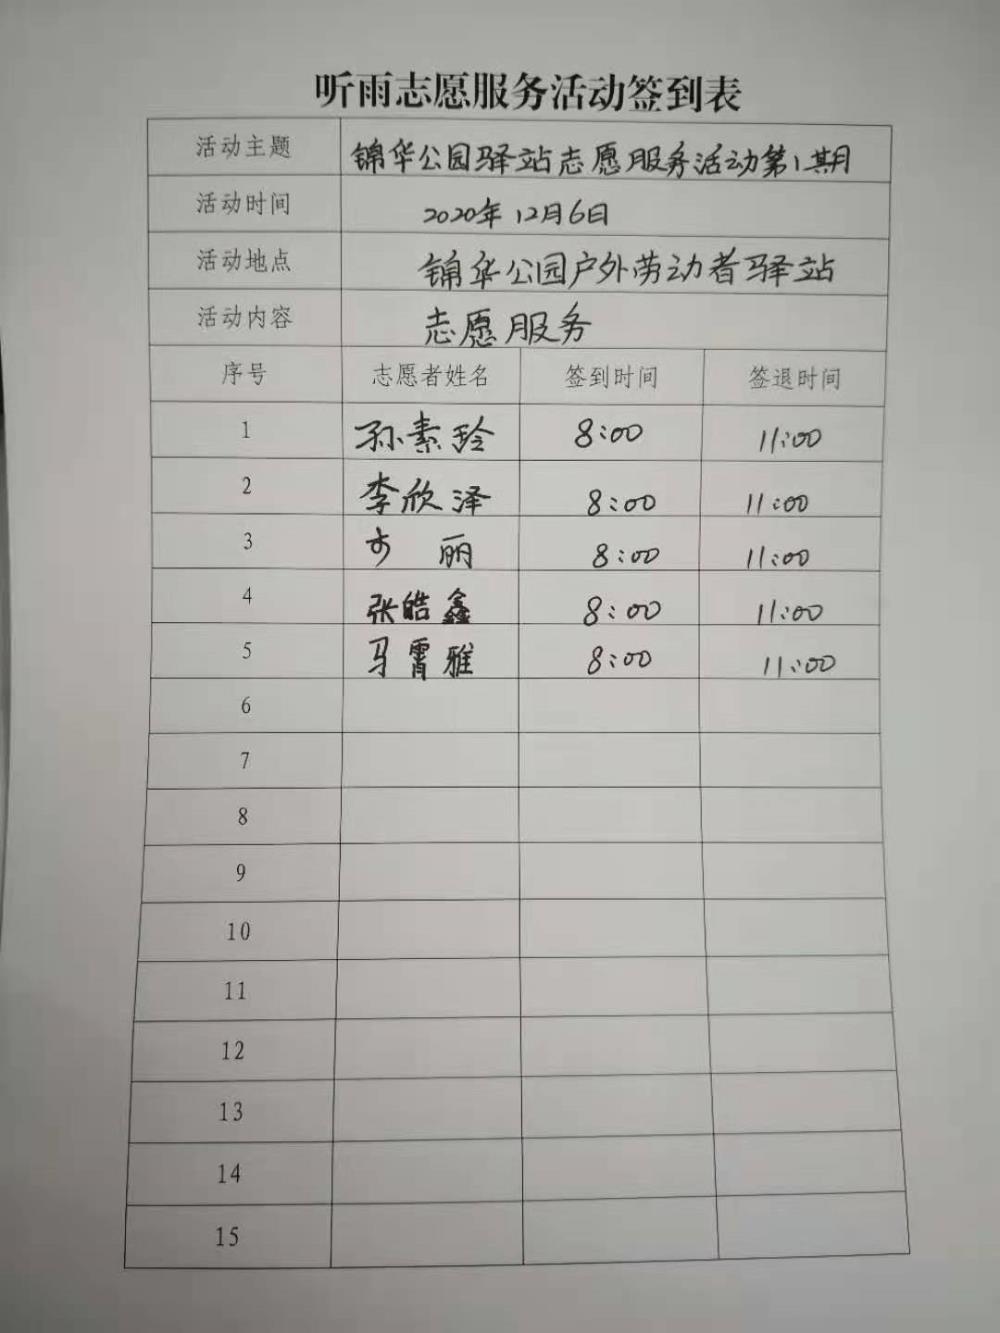 听雨志愿服务活动签到表
活动主题 锦华公园驿站志愿服务活动第1期
活动时间 2020年12月6日
活动地点 锦华公园户外劳动者驿站
活动内容 志愿服务
序号 志愿者姓名 签到时间 签退时间
1 孙素玲 8:00 11:00
2 李欣泽 8:00 11:00
3 丽 8:00 11:00
4 张皓鑫 8:00 11:00
5 马霄雅 8:00 11:00
6
7
8
9
10
11
12
13
14
15